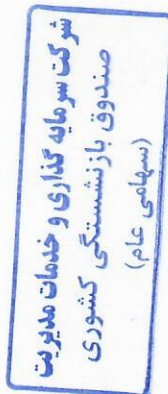 شرکت سرمایه گذاری و خدمات مدیریت
صندوق بازنشستگی کشوری
(سهامی عام)